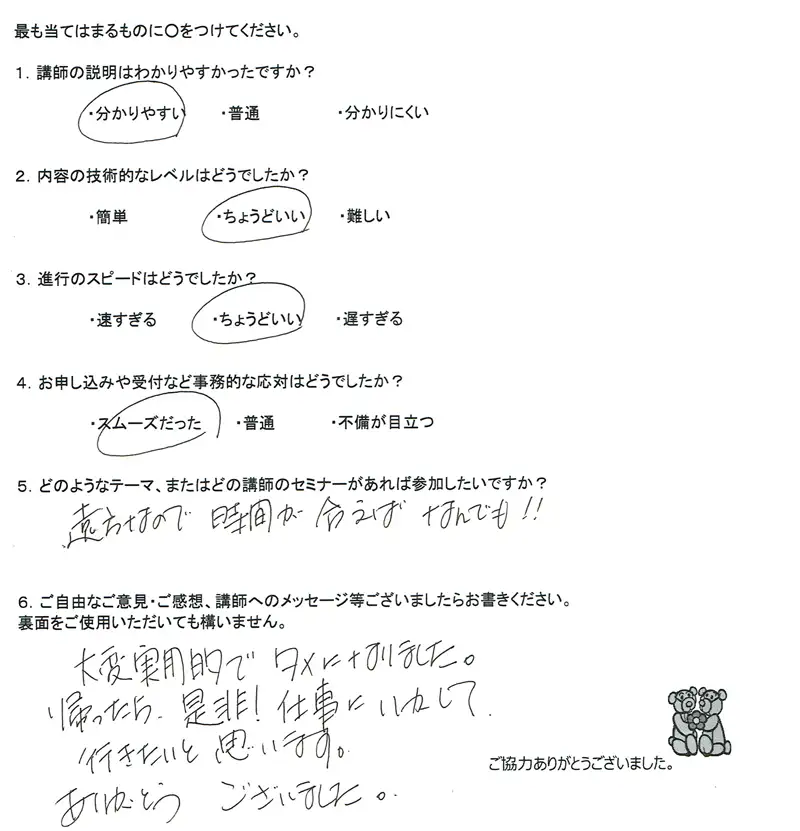 最も当てはまるものに〇をつけてください。
1. 講師の説明はわかりやすかったですか？
・分かりやすい ・普通 ・分かりにくい
2. 内容の技術的なレベルはどうでしたか？
・簡単 ・ちょうどいい ・難しい
3. 進行のスピードはどうでしたか？
・速すぎる ・ちょうどいい ・遅すぎる
4. お申し込みや受付など事務的な応対はどうでしたか？
・スムーズだった ・普通 ・不備が目立つ
5. どのようなテーマ、またはどの講師のセミナーがあれば参加したいですか？
遠方なので 時間が 合えば なんでも!!
6. ご自由なご意見・ご感想、講師へのメッセージ等ございましたらお書きください。
裏面をご使用いただいても構いません。
大変実用的で タメになりました。
帰ったら、是非! 仕事に いかして
行きたいと 思います。
ありがとう ございました。
ご協力ありがとうございました。